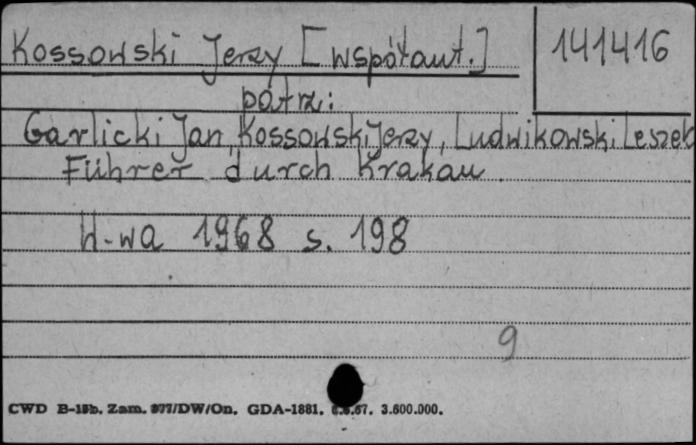 Kossowski Jerzy [współaut.]
141416
patrz:
Garlicki Jan, Kossowski Jerzy, Ludwikowski Leszek
Führer durch Krakau.
W-wa 1968 s. 198
9
CWD B-15b. Zam. 977/DW/On. GDA-1881. 67. 3.600.000.